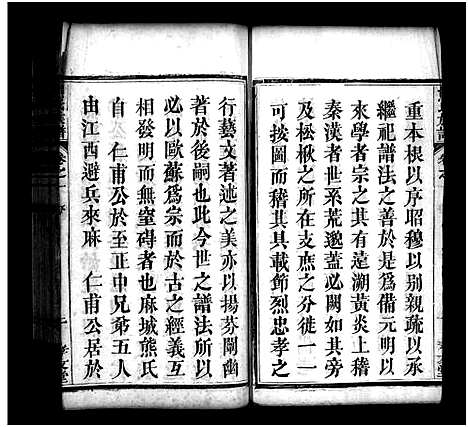 重本根以序昭穆以别親疏以承
繼祀譜法之善於是爲備元明以
來學者宗之其有遠溯黃炎上稽
秦漢者世系荒邈蓋必闕如其旁
及松楸之所在支庶之分徙一一
可按圖而稽其具載節烈忠孝之
行藝文著述之美亦以揚芬闡幽
著於後嗣也此今世之譜法所以
必以歐蘇爲宗而於古之經義互
相發明而無窒礙者也麻城熊氏
自 仁甫公於至正中兄弟五人
由江西避兵來麻 仁甫公居於